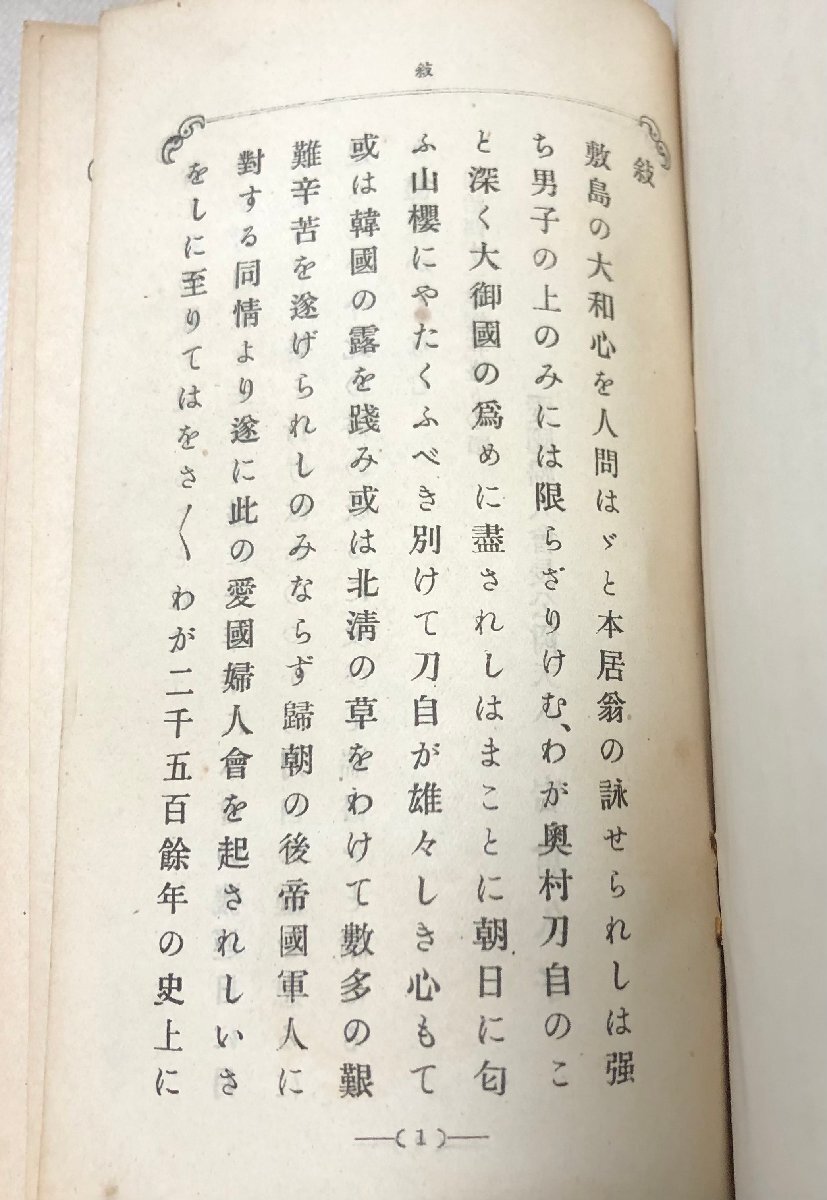 敍
敍
敷島の大和心を人問はゞと本居翁の詠せられしは强
ち男子の上のみには限らざりけむ、わが奧村刀自のこ
と深く大御國の爲めに盡されしはまことに朝日に匂
ふ山櫻にやたくふべき別けて刀自が雄々しき心もて
或は韓國の露を踐み或は北淸の草をわけて數多の艱
難辛苦を遂げられしのみならず歸朝の後帝國軍人に
對する同情より遂に此の愛國婦人會を起されしいさ
をしに至りてはをさ〱わが二千五百餘年の史上に
(1)